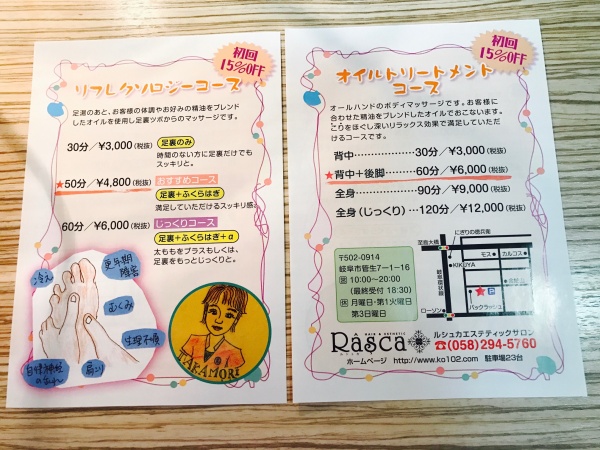 初回
15%OFF
リフレクソロジーコース
足湯のあと、お客様の体調やお好みの精油をブレンド
したオイルを使用し足裏ツボからのマッサージです。
30分／¥3,000(税抜)
足裏のみ
時間のない方に足裏だけでも
スッキリと。
★50分／¥4,800(税抜)
おすすめコース
足裏+ふくらはぎ
満足していただけるスッキリ感。
60分／¥6,000(税抜)
じっくりコース
足裏+ふくらはぎ+α
太ももをプラスもしくは、
足裏をもっとじっくりと。
冷え
更年期
障害
むくみ
生理不順
肩こり
自律神経
TAKAMORI
初回
15%OFF
オイルトリートメント
コース
オールハンドのボディマッサージです。お客様に
合わせた精油をブレンドしたオイルでおこないます。
こりをほぐし深いリラックス効果で満足していただ
けるコースです。
背中………………30分／¥3,000(税抜)
★背中+後脚………60分／¥6,000(税抜)
全身………………90分／¥9,000(税抜)
全身(じっくり)…120分／¥12,000(税抜)
〒502-0914
岐阜市菅生7-1-16
営 10:00~20:00
(最終受付 18:30)
休 月曜日・第1火曜日
第3日曜日
至忠節大橋
にぎりの徳兵衛
KIKUYA
モス
カルコス
岐阜環状線
ローソン
バックラッシュ
P
Rasca
HAIR & ESTHETIC
ルシュカエステティックサロン
☎(058)294-5760
ホームページ http://www.ko102.com 駐車場23台